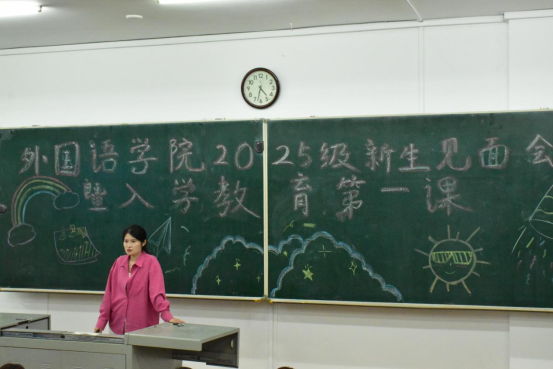 外国语学院2025级新生见面会
暨入学教育第一课